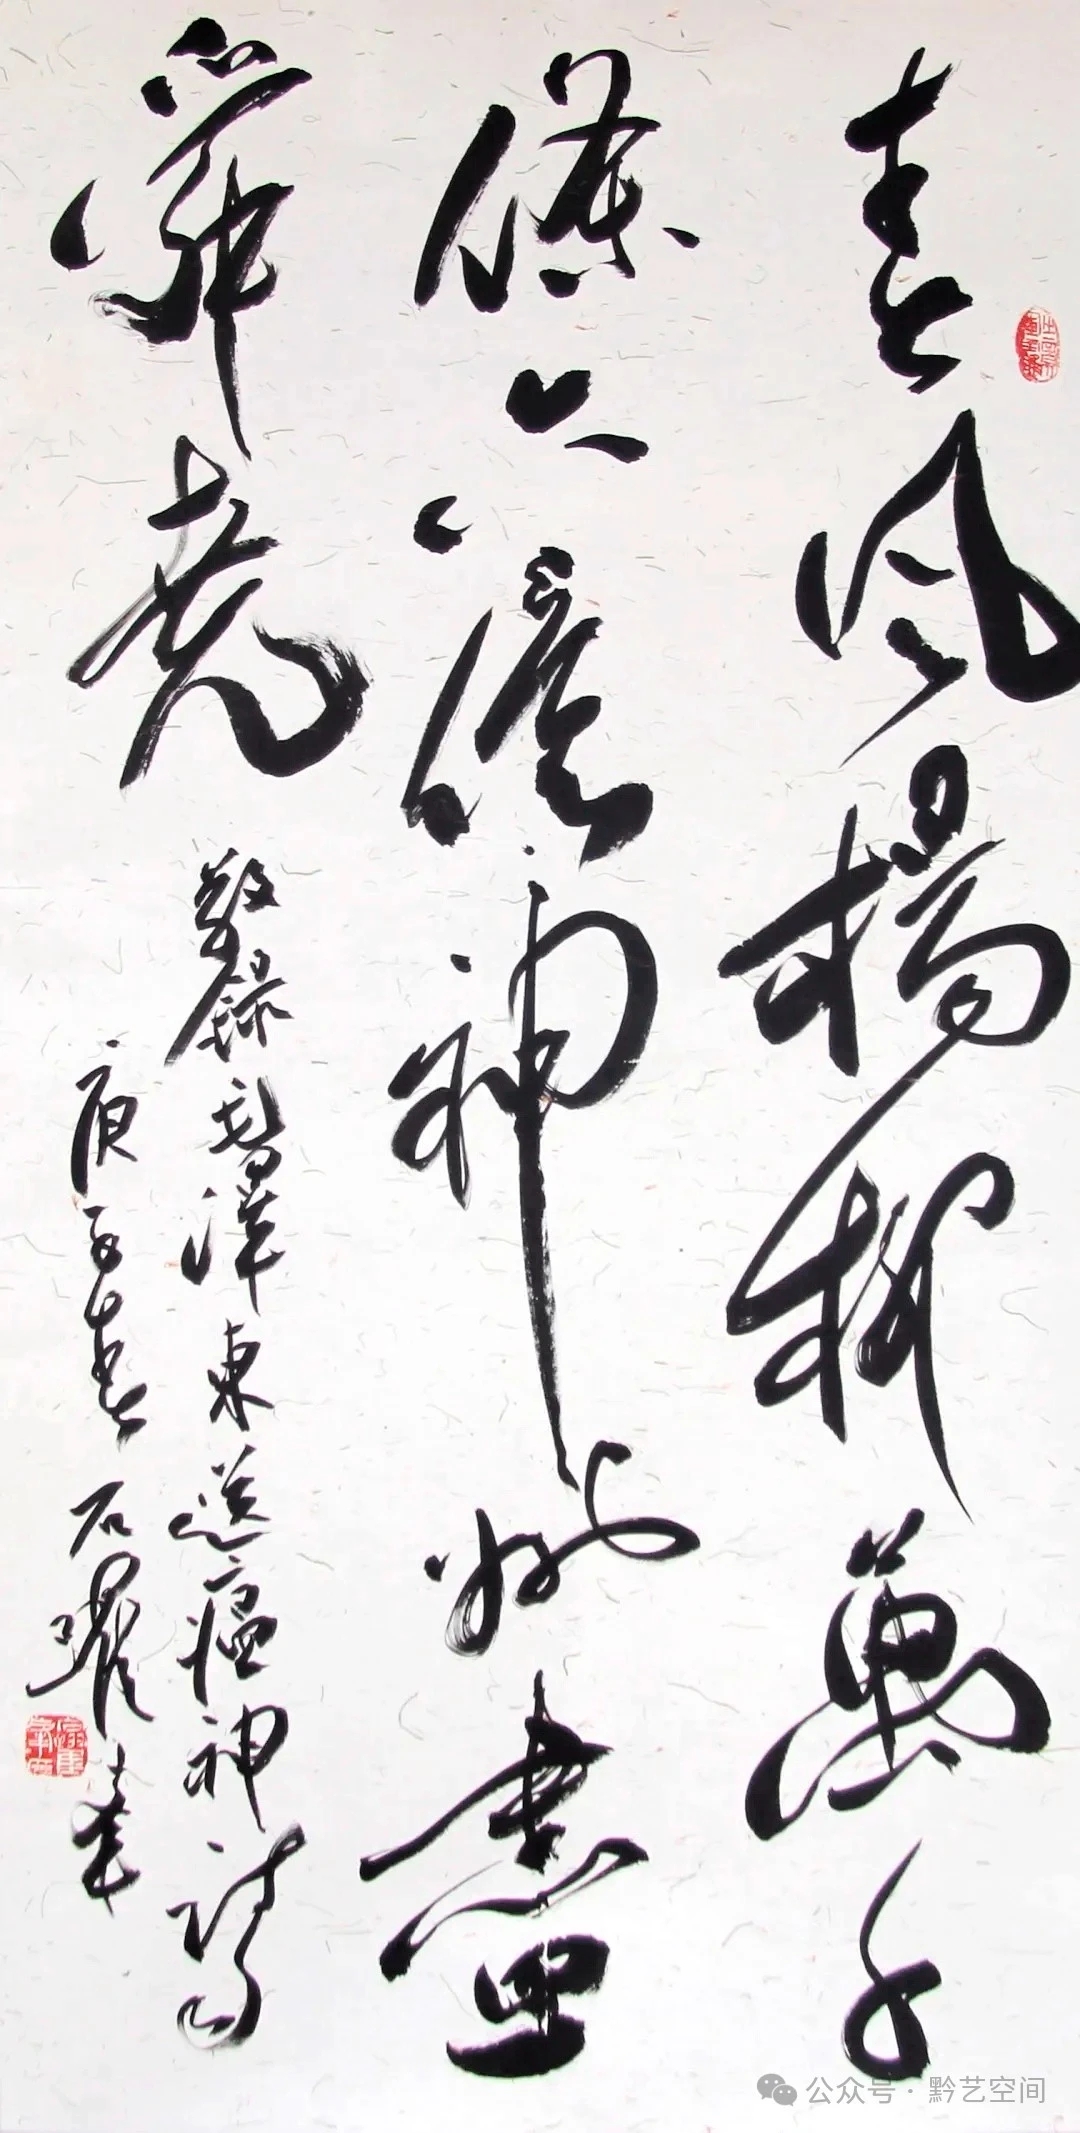 春風楊柳萬千
條六億神州盡
舜堯
敬録毛澤東送瘟神詩
庚子春 石躍
公众号·黔艺空间